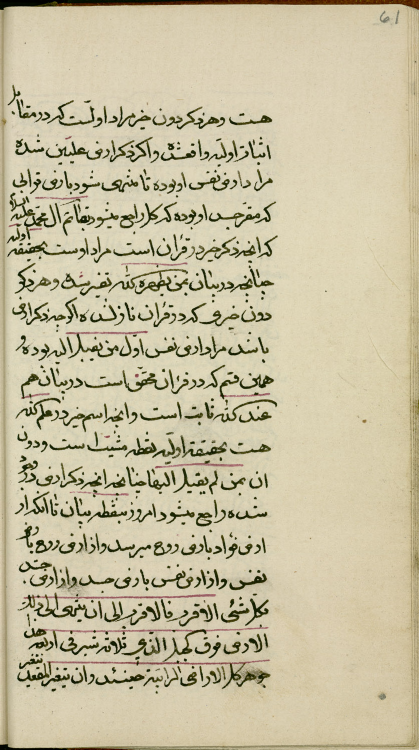 61
هست و هر ذکر دون خیر مراد اولست که در مقابل
اثبات اولیه واقعشده و اگر ذکر ادنی علیین شده
مراد ادنی نفس او بوده تا منتهی شود بادنی قوالی
که مقر جسد او بوده که کل راجع میشود بقائم آل محمد علیه السلام
که آنچه ذکر خیر در قران است مراد اوست بحقیقت اولیه
چنانچه در بیان بمن یظهره الله تفسیر شده و هر ذکر
دون خیری که در قران نازل شده اگر چه ذکر ادنی
باشد مراد ادنی نفس اول من یقبل الیه بوده و
همین قسم که در قران محقق است در بیان هم
عند الله ثابت است و آنچه اسم خیر در علم الله
هست بحقیقت اولیه نقطه مشیت است و دون
ان بمن لم یقبل الیها چنانچه آنچه ذکر ادنی در
شده راجع میشود امروز بنقطه بیان تا آنکه از
ادنی فؤاد بادنی روح میرسد و از ادنی روح بادنی
نفس و از ادنی نفس بادنی جسد و از ادنی جسد
بکل شیء الاقرب فالاقرب الی ان ینتهی الی ذلک
الادنی فوق الذی
جوهر کل الاراضی حینئذ و ان